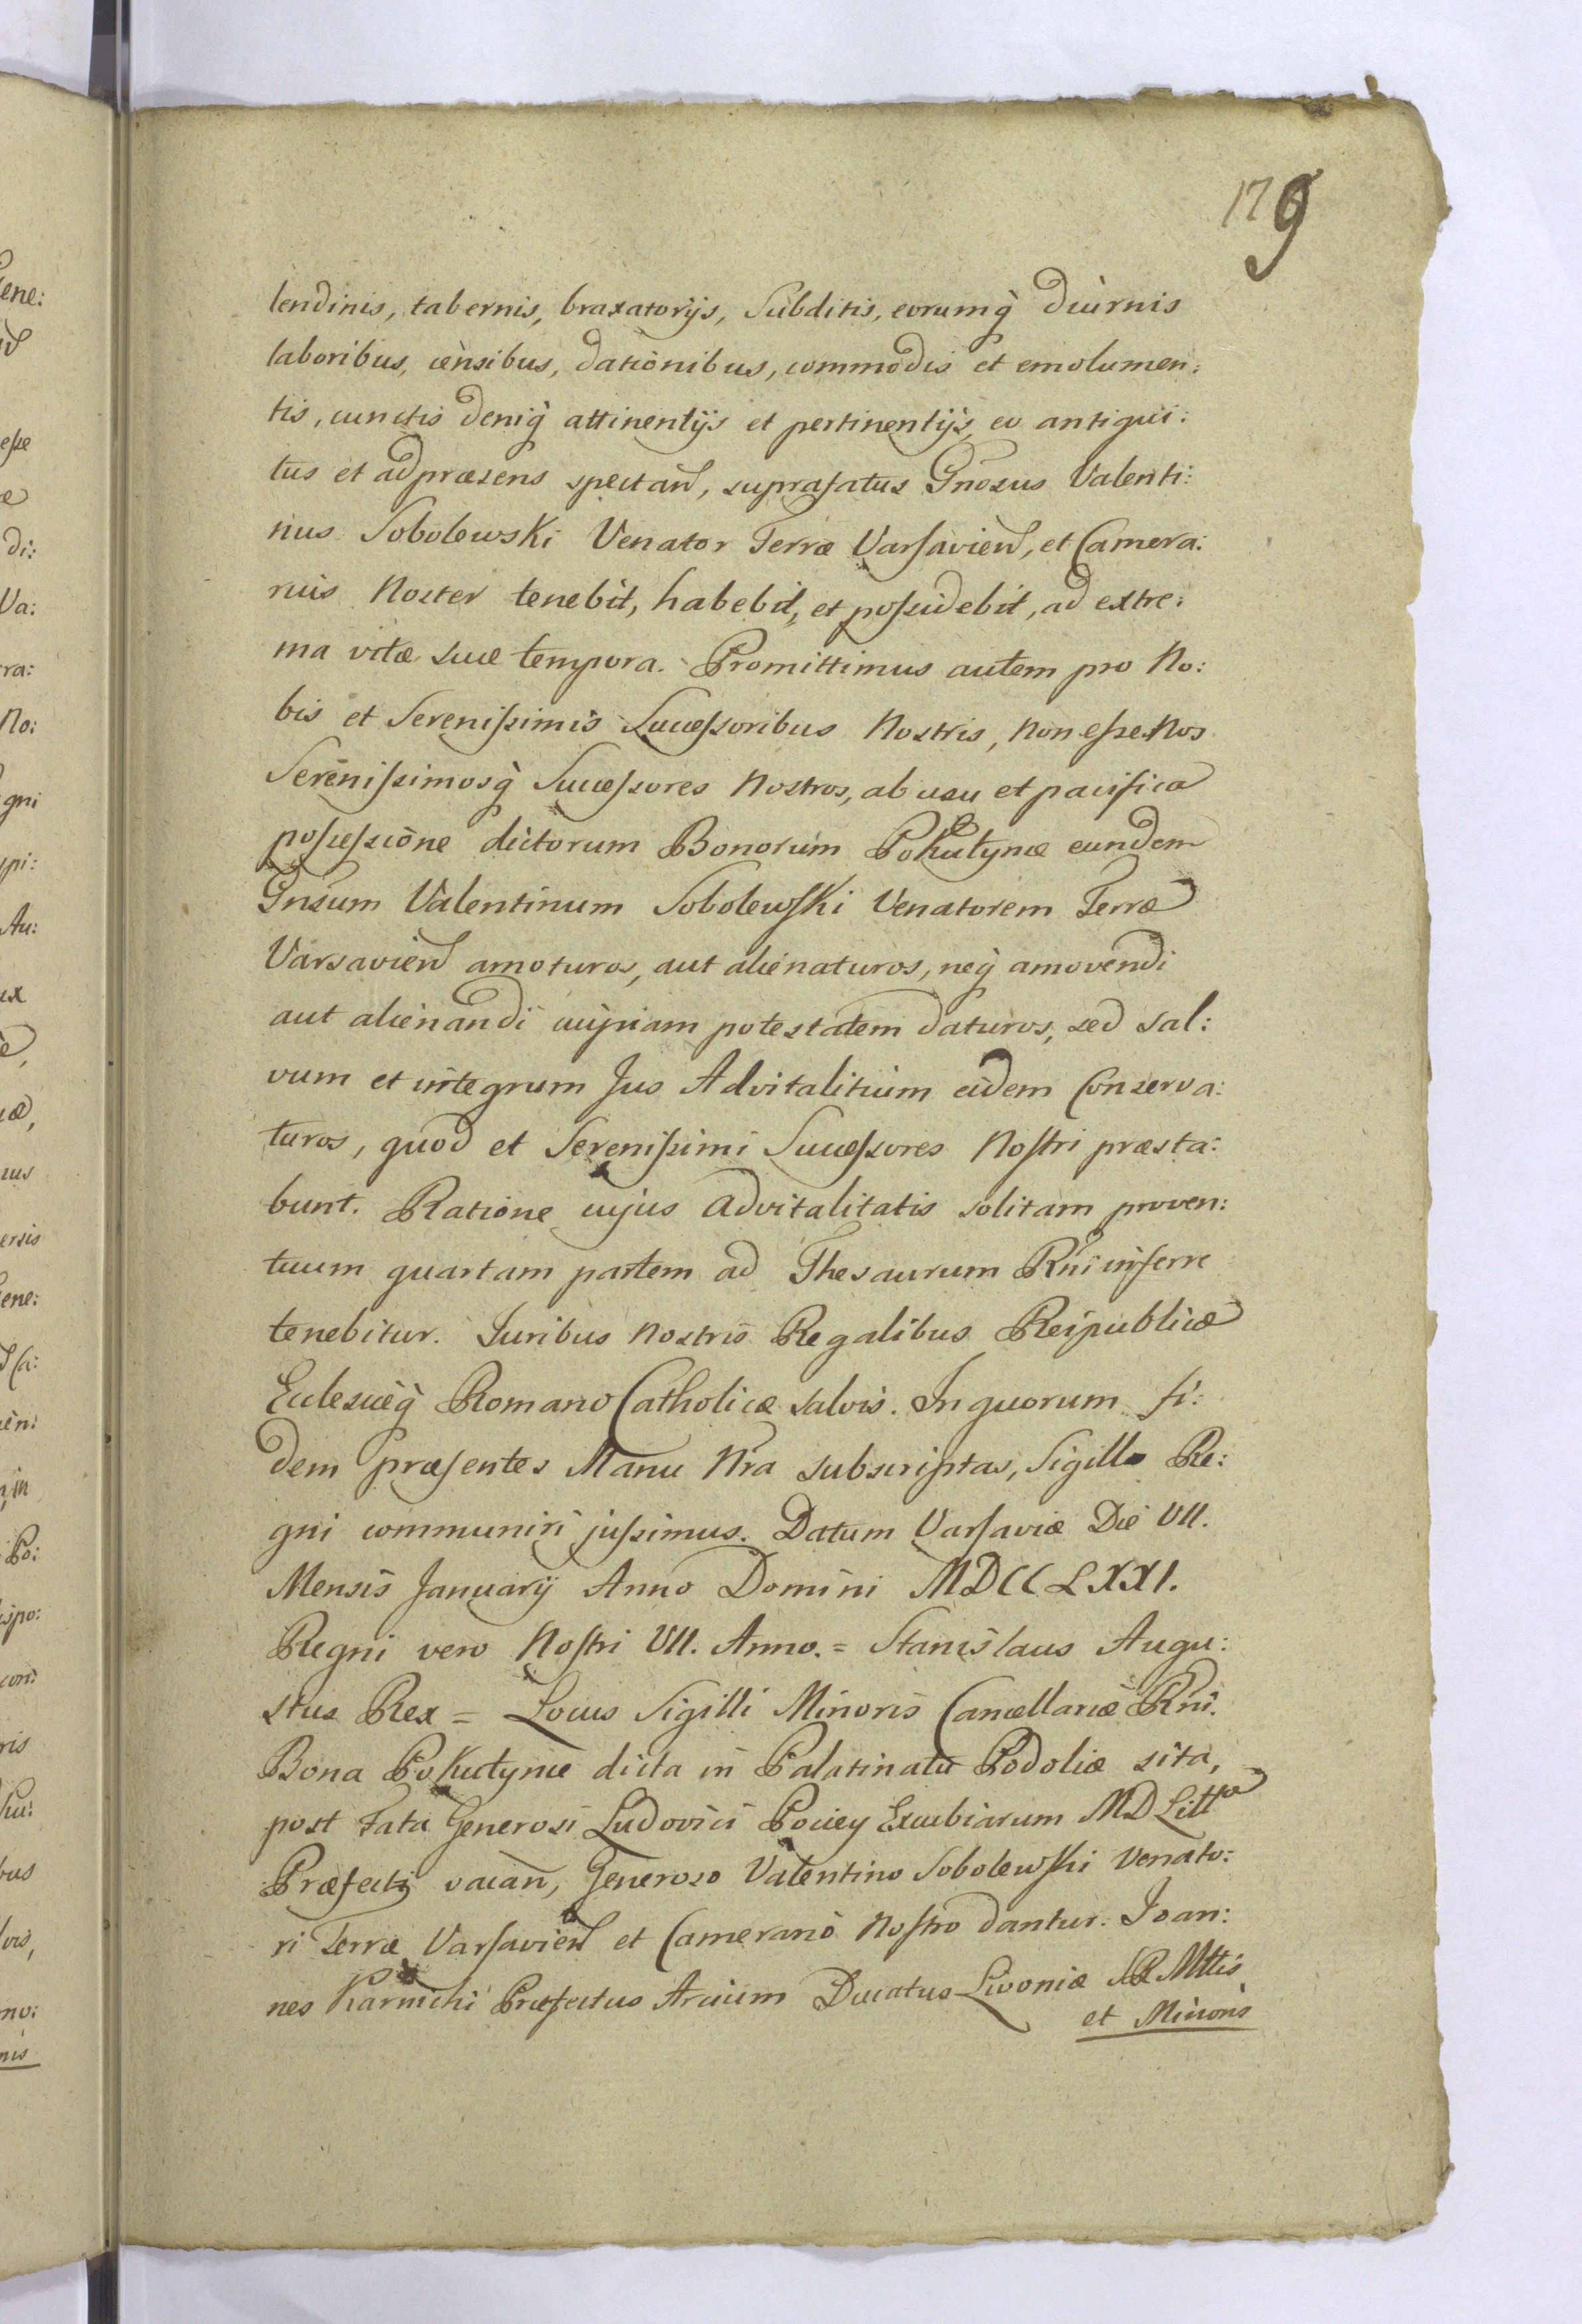 179
lendinis, tabernis, braxatorijs, Subditis, eorumq̀ diurnis
laboribus, censibus, dationibus, commodis et emolumen:
tis, cunctis deniq̀ attinentijs et pertinentijs eo antiqui:
tus et ad præsens spectan, suprafatus Gnosus Valenti:
nus Sobolewski Venator Terræ Varsavien, et Camera:
rius Noster tenebit, habebit, et possidebit, ad extre:
ma vitæ suæ tempora. Promittimus autem pro No:
bis et Serenissimis Successoribus Nostris, non esse Nos
Serenissimosq̀ Successores Nostros, ab usu et pacifica
possessione dictorum Bonorum Pokutyme eundem
Gnsum Valentinum Sobolewski Venatorem Terræ
Varsavien amoturos, aut alienaturos, neq̀ amovendi
aut alienandi cuipiam potestatem daturos, sed sal:
vum et integrum Jus Advitalitium eidem Conserva:
turos, quod et Serenissimi Successores Nostri præsta:
bunt. Ratione cujus advitalitatis solitam proven:
tuum quartam partem ad Thesaurum Rni inferre
tenebitur. Juribus nostris Regalibus Reipublicæ
Eclesiæq̀ Romano Catholicæ salvis. In quorum fi:
dem præsentes Manu Nra subscriptas, Sigillo Re:
gni communiri jussimus. Datum Varsaviæ Die VII.
Mensis Januarij Anno Domini MDCCLXXI.
Regni vero Nostri VII. Anno. = Stanislaus Augu:
stus Rex = Locus Sigilli Minoris Cancellariæ Rni.
Bona Pokutyme dicta in Palatinatu Podoliæ sita,
post Fata Generosi Ludovici Pociey Excubiarum MD Litt
Præfecti vacan, Generoso Valentino Sobolewski Venato:
ri Terræ Varsavien et Camerario Nostro dantur. Joan:
nes Karnicki Præfectus Arcium Ducatus Livoniæ SR Mttis
et Minoris